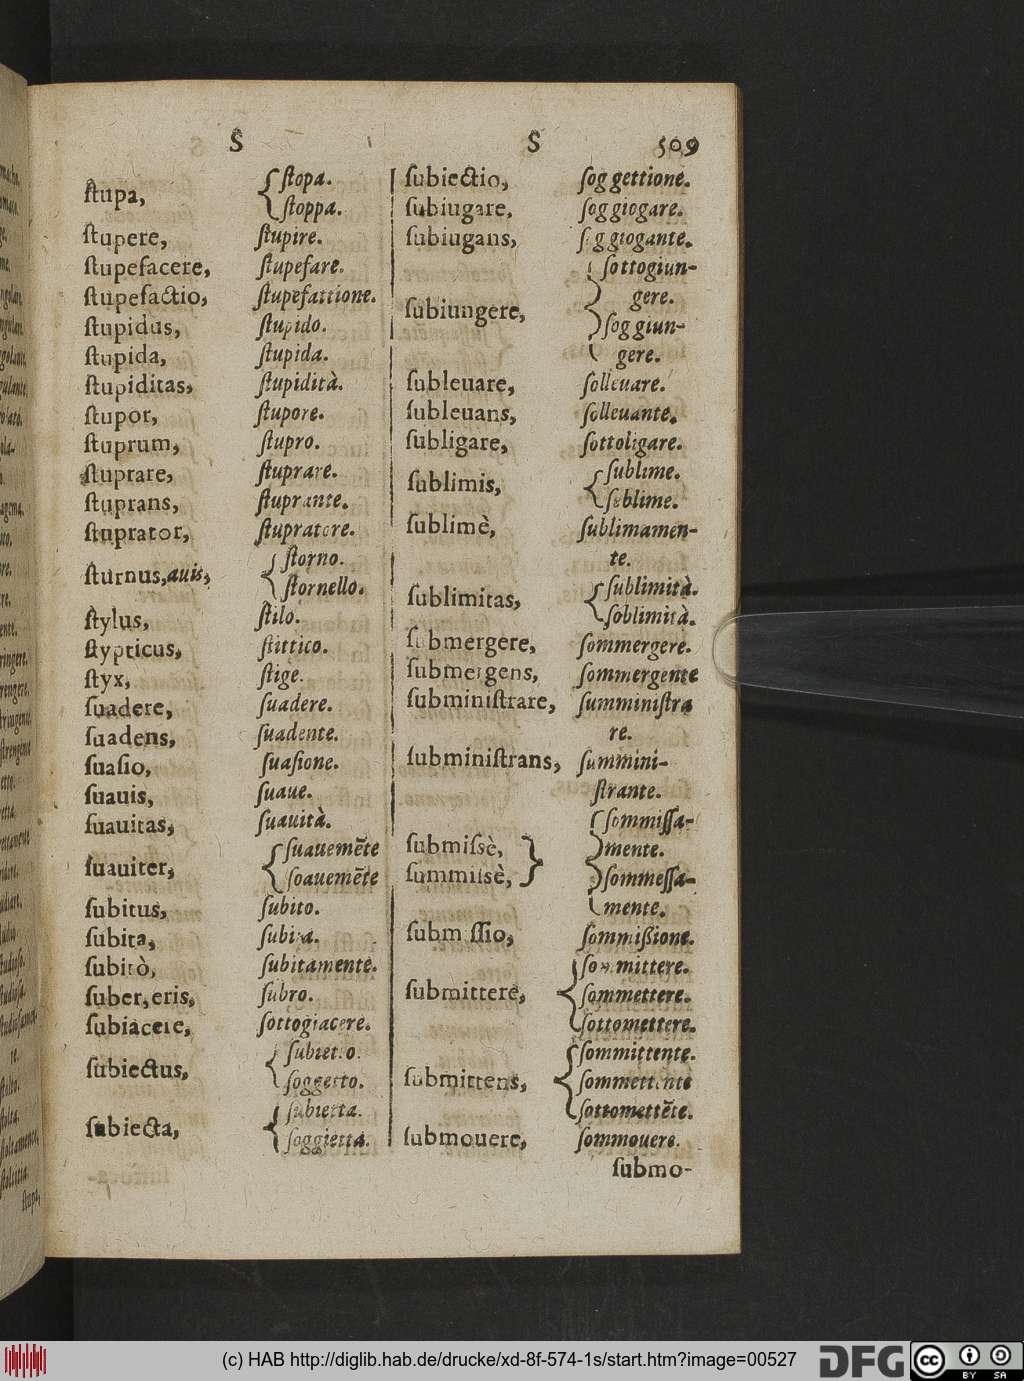 S S 509
ſtupa, {ſtopa.
ſtoppa.
ſtupere, ſtupire.
ſtupefacere, ſtupefare.
ſtupefactio, ſtupefattione.
ſtupidus, ſtupido.
ſtupida, ſtupida.
ſtupiditas, ſtupidità.
ſtupor, ſtupore.
ſtuprum, ſtupro.
ſtuprare, ſtuprare.
ſtuprans, ſtuprante.
ſtuprator, ſtupratore.
ſturnus, auis, {ſtorno.
ſtornello.
ſtylus, ſtilo.
ſtypticus, ſtittico.
ſtyx, ſtige.
ſuadere, ſuadere.
ſuadens, ſuadente.
ſuaſio, ſuaſione.
ſuauis, ſuaue.
ſuauitas, ſuauità.
ſuauiter, {ſuauemẽte
ſoauemẽte
ſubitus, ſubito.
ſubita, ſubita.
ſubitò, ſubitamente.
ſuber, eris, ſubro.
ſubiacere, ſottogiacere.
ſubiectus, {ſubietto.
ſoggetto.
ſubiecta, {ſubietta.
ſoggietta.
ſubiectio, ſoggettione.
ſubiugare, ſoggiogare.
ſubiugans, ſoggiogante.
ſubiungere, {ſottogiun-
gere.
ſoggiun-
gere.
ſubleuare, ſolleuare.
ſubleuans, ſolleuante.
ſubligare, ſottoligare.
ſublimis, {ſublime.
ſoblime.
ſublimè, ſublimamen-
te.
ſublimitas, {ſublimità.
ſoblimità.
ſubmergere, ſommergere.
ſubmergens, ſommergente
ſubminiſtrare, ſumminiſtra
re.
ſubminiſtrans, ſummini-
ſtrante.
ſubmiſsè, } {ſommiſſa-
mente.
ſummiſsè, ſommeſſa-
mente.
ſubmiſſio, ſommißione.
ſubmittere, {ſommittere.
ſommettere.
ſottomettere.
ſubmittens, {ſommittente.
ſommettente
ſottomettẽte.
ſubmouere, ſommouere.
ſubmo-
(c) HAB http://diglib.hab.de/drucke/xd-8f-574-1s/start.htm?image=00527
DFG
cc BY SA